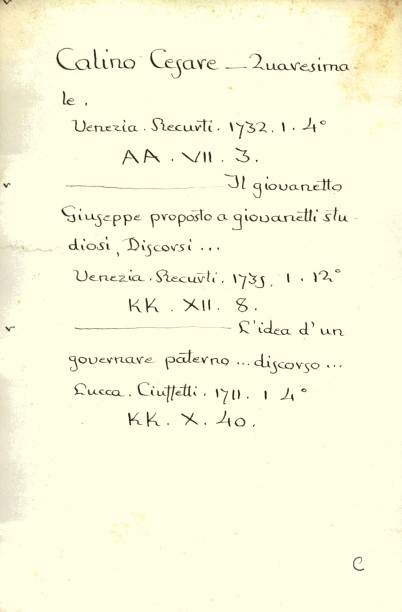 Calino Cesare — Quaresima-
le.
Venezia. Recurti. 1732. 1. 4°
AA. VII. 3.
——— Il giovanetto
Giuseppe proposto a giovanetti stu-
diosi, Discorsi ...
Venezia. Recurti. 1735. 1. 12°
KK. XII. 8.
——— L'idea d'un
governare paterno ... discorso ...
Lucca. Ciuffetti. 1711. 1 4°
KK. X. 40.
C